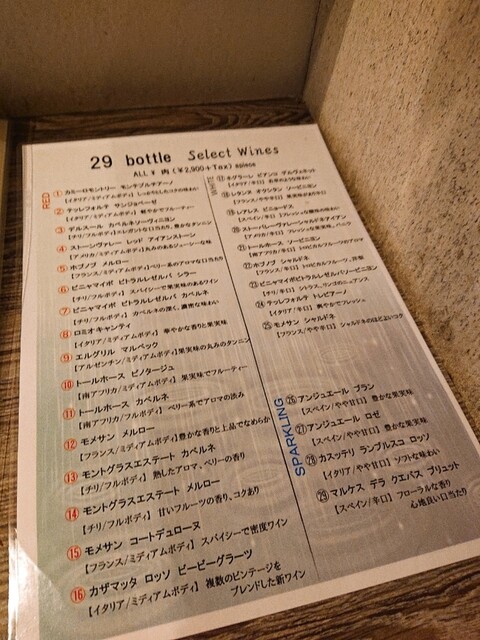 29 bottle Select Wines
ALL ¥ 肉 (¥2,900+Tax) epiece
RED
① カミーロモントリー モンテプルチアーノ
【イタリア/ミディアムボディ】しっかりとしたコクのある味わい
② テッレフォルテ サンジョベーゼ
【イタリア/ミディアムボディ】軽やかでフルーティー
③ デルスール カベルネソーヴィニヨン
【チリ/フルボディ】エレガントな口当たり、豊かなタンニン
④ ストーンヴァレー レッド アイアンストーン
【アメリカ/ミディアムボディ】丸みのあるジューシーな味
⑤ ホブノブ メルロー
【フランス/ミディアムボディ】ベリー系のアロマな口当たり
⑥ ビニャマイポ ビトラルレゼルバ シラー
【チリ/フルボディ】スパイシーで果実味のあるワイン
⑦ ビニャマイポ ビトラルレゼルバ カベルネ
【チリ/フルボディ】カベルネの深く、濃密な味わい
⑧ ロミオキャンティ
【イタリア/ミディアムボディ】華やかな香りと果実味
⑨ エルグリル マルベック
【アルゼンチン/ミディアムボディ】果実味の丸みのタンニン
⑩ トールホース ピノタージュ
【南アフリカ/ミディアムボディ】果実味でフルーティー
⑪ トールホース カベルネ
【南アフリカ/フルボディ】ベリー系でアロマの渋み
⑫ モメサン メルロー
【フランス/ミディアムボディ】豊かな香りと上品でなめらか
⑬ モントグラスエステート カベルネ
【チリ/フルボディ】熟したアロマ、ベリーの香り
⑭ モントグラスエステート メルロー
【チリ/フルボディ】甘いフルーツの香り、コクあり
⑮ モメサン コートデュローヌ
【フランス/ミディアムボディ】スパイシーで密度ワイン
⑯ カザマッタ ロッソ ビービーグラーツ
【イタリア/ミディアムボディ】複数のビンテージを
ブレンドした新ワイン
WHITE
⑰ ネグラーレ ビアンコ
【イタリア/辛口】
⑱ レタンヌ オクシタン ソービニヨン
【フランス/やや辛口】
⑲ レアレス ビニャードス
【スペイン/辛口】フレッシュな
⑳ ストーンバレーヴァレーシャルドネアイアン
【アメリカ/辛口】フレッシュな果実味
㉑ トールホース ソービニヨン
【南アフリカ/辛口】トロピカルフルーツのアロマ
㉒ ホブノブ シャルドネ
【フランス/辛口】トロピカルフルーツ、洋梨
㉓ ビニャマイポビトラルレゼルバソービニヨン
【チリ/辛口】シトラス、マンゴのニュアンス
㉔ テッレフォルテ トレビアーノ
【イタリア/辛口】爽やかでフレッシュ
㉕ モメサン シャルドネ
【フランス/やや辛口】シャルドネのほどよいコク
SPARKLING
㉖ アンジュエール ブラン
【スペイン/やや甘口】豊かな果実味
㉗ アンジュエール ロゼ
【スペイン/やや甘口】豊かな果実味
㉘ カステッリ ランブルスコ ロッソ
【イタリア/やや甘口】ソフトな味わい
㉙ マルケス デラ クエバス ブリュット
【スペイン/辛口】フローラルな香り
心地良い口当たり